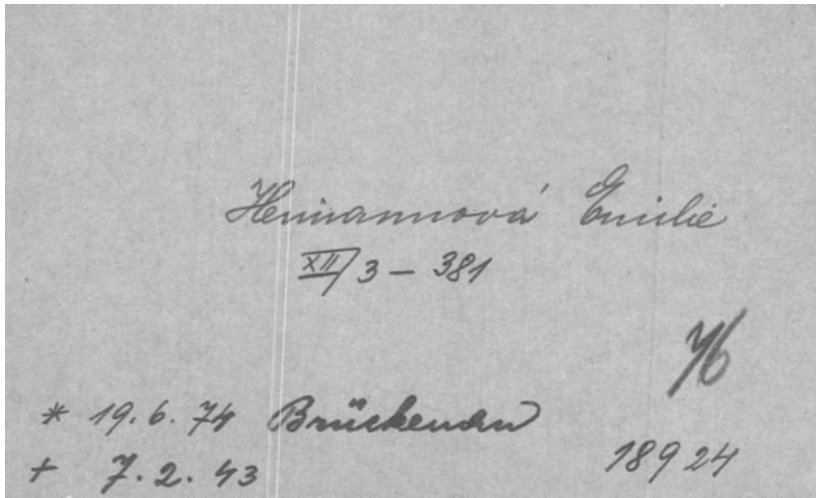 Heimannová Emilie
XII/3 - 381
* 19.6.74 Brückenau
+ 7.2.43
18924